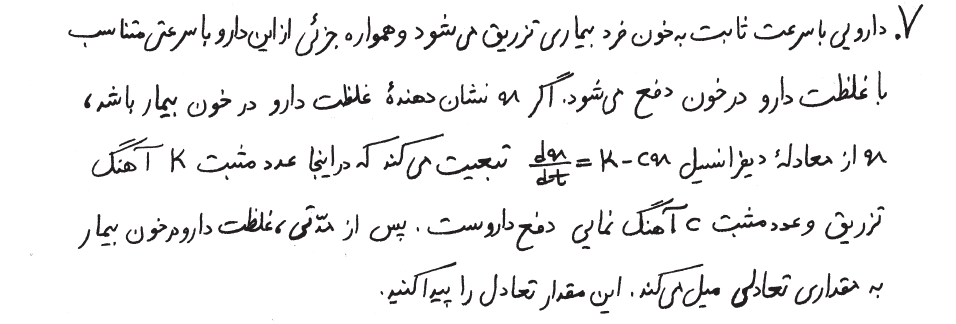 ۷. دارویی با سرعت ثابت به خون فرد بیماری تزریق می‌شود و همواره جزئی از این دارو با سرعتی متناسب
با غلظت دارو در خون دفع می‌شود. اگر x نشان دهندهٔ غلظت دارو در خون بیمار باشد،
x از معادلهٔ دیفرانسیل dx/dt = K - cx تبعیت می‌کند که در اینجا عدد مثبت K آهنگ
تزریق و عدد مثبت c آهنگ نمایی دفع داروست. پس از مدّتی، غلظت دارو در خون بیمار
به مقداری تعادلی میل می‌کند. این مقدار تعادل را پیدا کنید.